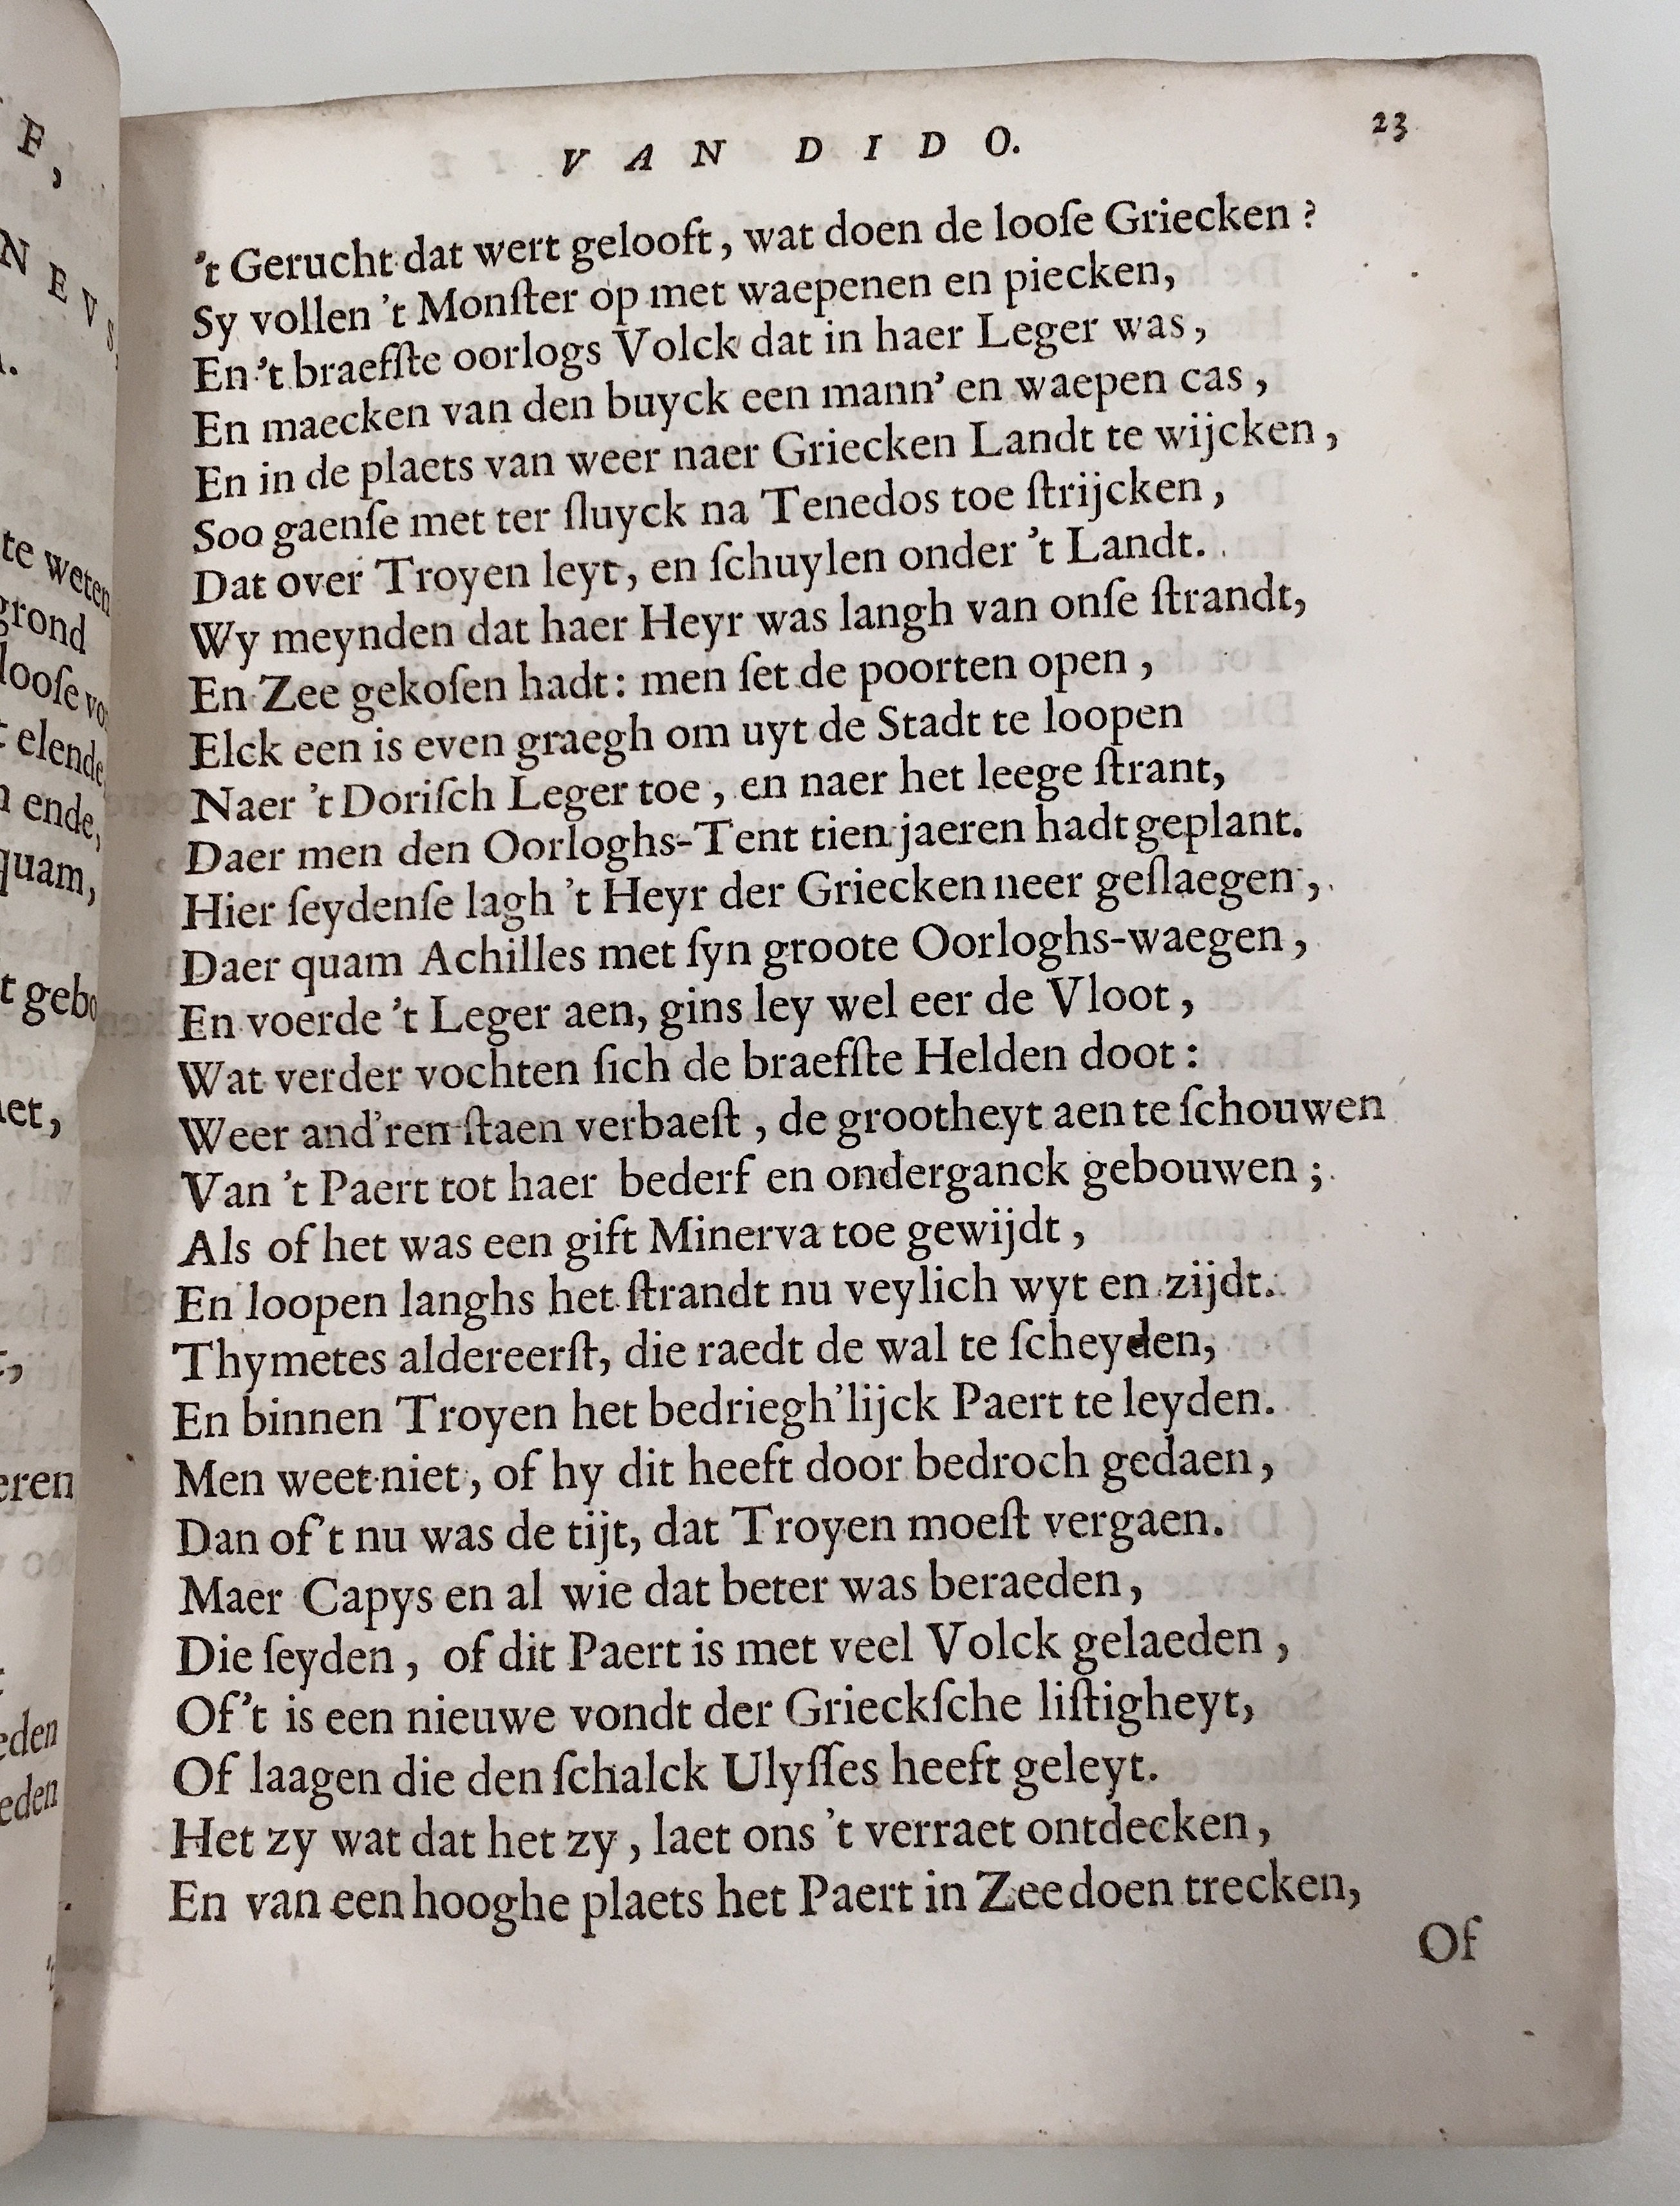 F,
NEVS,
te weten
grond
loose
elende,
ende,
quam,
VAN DIDO. 23
't Gerucht dat wert gelooft, wat doen de looſe Griecken?
Sy vollen 't Monſter op met waepenen en piecken,
En 't braefſte oorlogs Volck dat in haer Leger was,
En maecken van den buyck een mann' en waepen cas,
En in de plaets van weer naer Griecken Landt te wijcken,
Soo gaenſe met ter ſluyck na Tenedos toe ſtrijcken,
Dat over Troyen leyt, en ſchuylen onder 't Landt.
Wy meynden dat haer Heyr was langh van onſe ſtrandt,
En Zee gekoſen hadt: men ſet de poorten open,
Elck een is even graegh om uyt de Stadt te loopen
Naer 't Doriſch Leger toe, en naer het leege ſtrant,
Daer men den Oorloghs-Tent tien jaeren hadt geplant.
Hier ſeydenſe lagh 't Heyr der Griecken neer geſlaegen,
Daer quam Achilles met ſyn groote Oorloghs-waegen,
En voerde 't Leger aen, gins ley wel eer de Vloot,
Wat verder vochten ſich de braefſte Helden doot:
Weer and'ren ſtaen verbaeſt, de grootheyt aen te ſchouwen
Van 't Paert tot haer bederf en onderganck gebouwen;
Als of het was een gift Minerva toe gewijdt,
En loopen langhs het ſtrandt nu veylich wyt en zijdt.
Thymetes aldereerſt, die raedt de wal te ſcheyden,
En binnen Troyen het bedriegh'lijck Paert te leyden.
Men weet niet, of hy dit heeft door bedroch gedaen,
Dan of't nu was de tijt, dat Troyen moeſt vergaen.
Maer Capys en al wie dat beter was beraeden,
Die ſeyden, of dit Paert is met veel Volck gelaeden,
Of't is een nieuwe vondt der Grieckſche liſtigheyt,
Of laagen die den ſchalck Ulyſſes heeft geleyt.
Het zy wat dat het zy, laet ons 't verraet ontdecken,
En van een hooghe plaets het Paert in Zee doen trecken,
Of